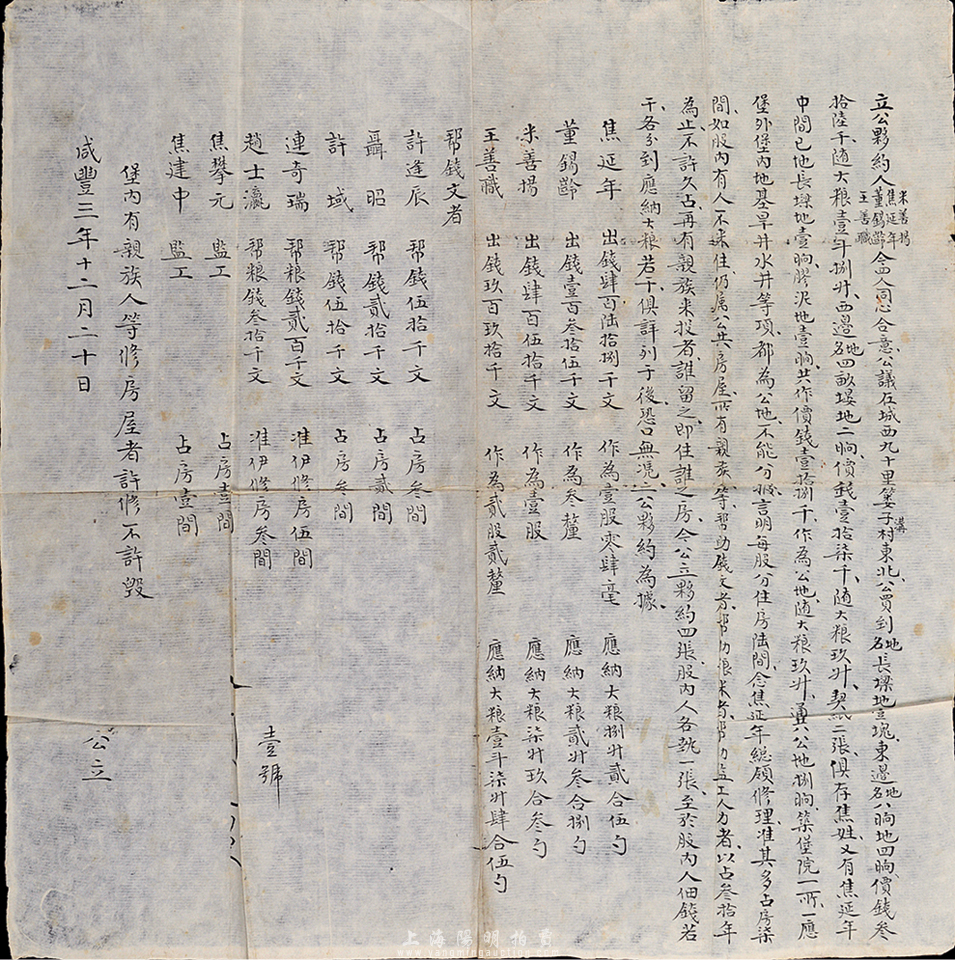 立公夥約人米善揚焦延年董錫齡王善職仝四人同心合意公議在城西九十里簍子溝村東北公買到地名長墚地壹塊東邊地名八晌地四晌價錢叁
拾陸千随大粮壹斗捌升西邊地名四畝塂地二晌價銭壹拾柒千随大粮玖升契紙二張俱存焦姓又有焦延年
中間已地長墚地壹晌膠泥地壹晌共作價錢壹拾捌千作為公地随大粮玖升通共公地捌晌築堡院一所一應
堡外堡內地基旱井水井等項都為公地不能分撥言明每股分住房陸間念焦延年總領修理准其多占房柒
間如股內有人不来住仍属公共房屋所有親族等帮助錢文者帮助粮米者帮助监工人力者以占叁拾年
為止不許久占再有親族来投者誰留之即住誰之房今公立夥約四張股內人各執一張至於股內人佃錢若
干各分到應納大粮若干俱詳列于後恐口無凭立公夥約為據
焦延年 出錢肆百陸拾捌千文 作為壹股零肆毫 應納大粮捌升貳合伍勺
董錫齡 出錢壹百叁拾伍千文 作為叁釐 應納大粮貳升叁合捌勺
米善揚 出錢肆百伍拾千文 作為壹股 應納大粮柒升玖合叁勺
王善職 出錢玖百玖拾千文 作為貳股貳釐 應納大粮壹斗柒升肆合伍勺
帮錢文者
許逢辰 帮錢伍拾千文 占房叁間
聶昭 帮錢貳拾千文 占房貳間
許域 帮錢伍拾千文 占房叁間
連奇瑞 帮粮錢貳百千文 准伊修房伍間
趙士瀛 帮粮錢叁拾千文 准伊修房叁間
焦攀元 监工 占房壹間
焦建中 监工 占房壹間
壹號
堡內有親族人等修房屋者許修不許毁
咸豐三年十二月二十日
公立
上海陽明拍賣